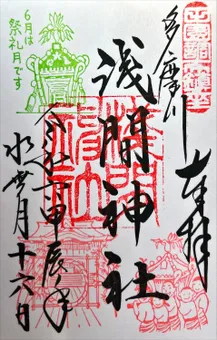 多摩川
奉拝
浅間神社
令和六年甲辰年
水無月十六日
6月は
祭礼月です